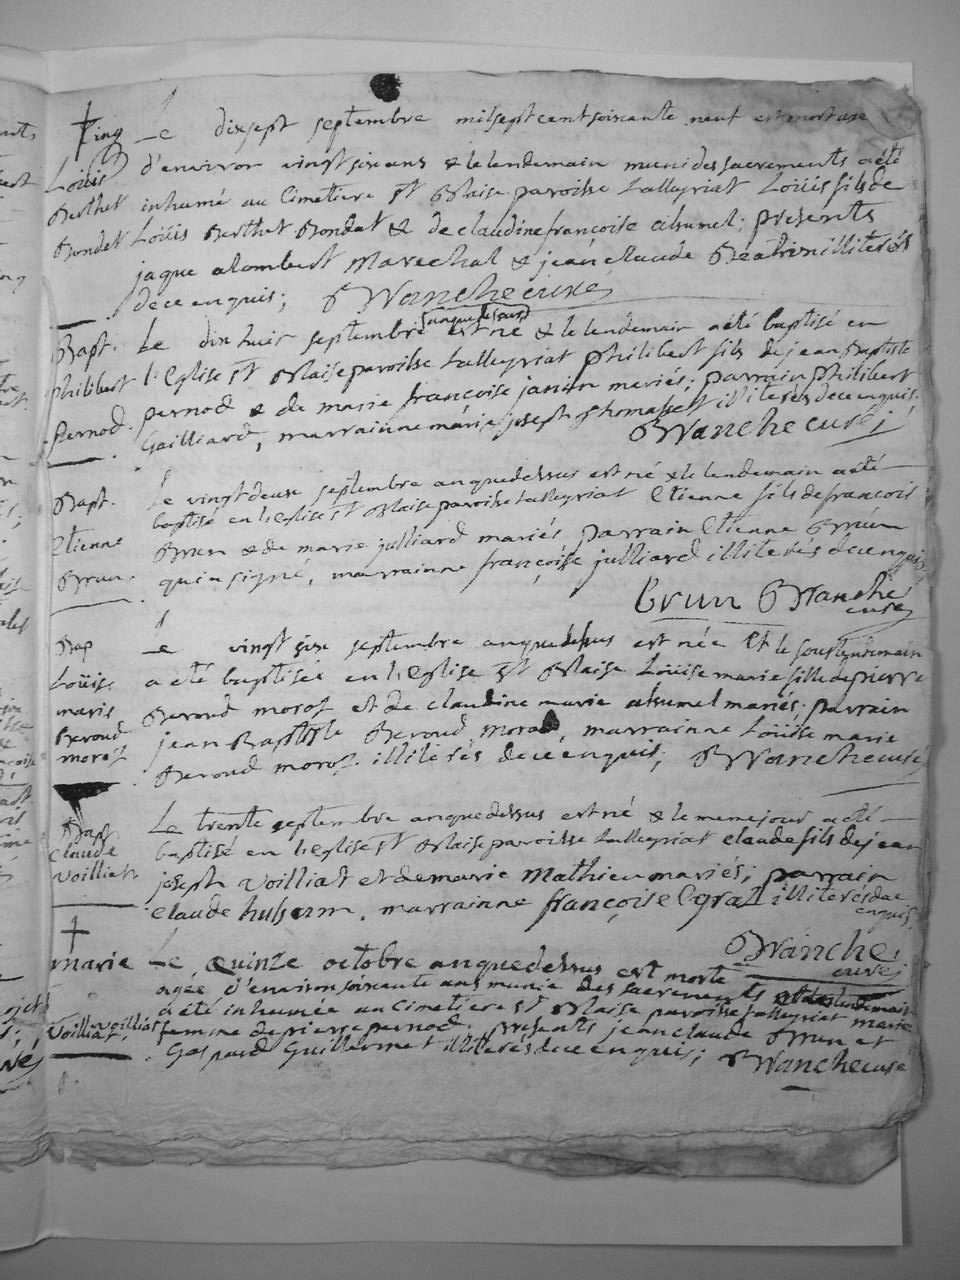 Le dixsept septembre mil sept cent soixante neuf est mort age
Louis d'environ vingt six ans & le lendemain muni des sacrements a été
Berthet inhumé au Cimetiere St Blaise paroisse talleyriat Loüis fils de
Bondet Loüis Berthet Bondet & de claudine françoise ; presents
jaque alombert Marechal & jean claude illiterés
de ce enquis; Blanche curé
Bapt. Le dix huit septembre anquedessus est né & le lendemain a été baptisé en
philibert l'Eglise St Blaise paroisse talleyriat philibert fils de jean Baptiste
pernod. pernod & de marie françoise janin mariés; parrain philibert
Gailliard, marrainne marie joseph thomasset illiterés de ce enquis.
Blanche curé
Bapt. Le vingt deux septembre anquedessus est né & le lendemain a été
baptisé en l'Eglise St Blaise paroisse talleyriat Etienne fils de francois
Etienne Brun & de marie julliard mariés, parrain Etienne Brun
Brun. qui a signé, marrainne françoise julliard illiterés de ce enquis
Brun Blanche
curé
Bap Le vingt six septembre anquedessus est née Et le surlendemain
Loüise a été baptisée en l'Eglise St Blaise Loüise marie fille de pierre
marie Beroud morot et de claudine marie mariés; parrain
Beroud jean Baptiste Beroud morod, marrainne Loüise marie
morot Beroud morot. illiterés de ce enquis; Blanche curé
Bapt Le trente septembre anquedessus est né & le meme jour a été
claude baptisé en l'Eglise St Blaise paroisse talleyriat claude fils de jean
Voilliat joseph Voilliat et de marie Mathieu mariés; parrain
claude, marrainne françoise illiterés de ce
enquis
Blanche
curé
marie Le quinze octobre anquedessus est morte
agée d'environ soixante ans munie des sacrements et le lendemain
a été inhumée au cimetiere St Blaise paroisse talleyriat marie
Voilliat. voilliat femme de pierre pernod. presents jean claude Brun et
Gaspard Guillermet illiterés de ce enquis; Blanche curé